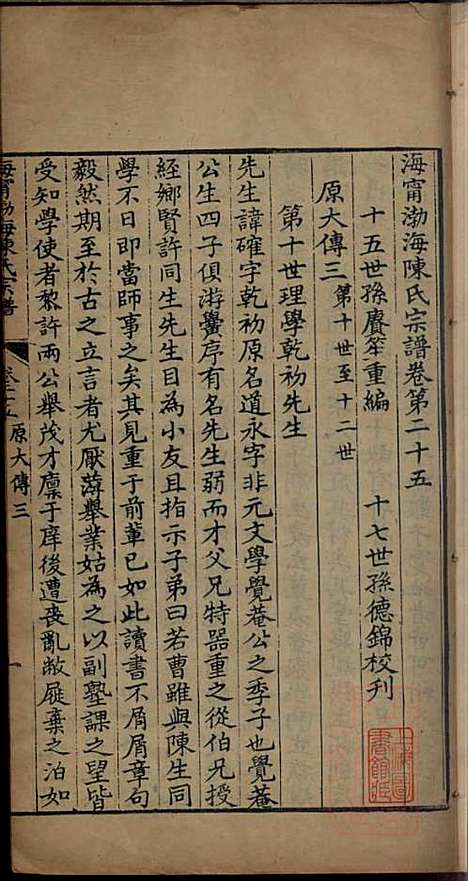 海甯渤海陳氏宗譜卷第二十五
十五世孫賡笙重編　十七世孫德錦校刊
原大傳三 第十世至十二世
第十世理學乾初先生
先生諱確字乾初原名道永字非元文學覺菴公之季子也覺菴
公生四子俱游黌序有名先生弱而才父兄特器重之從伯兄授
經鄉賢許同生先生目為小友且指示子弟曰若曹雖與陳生同
學不日即當師事之矣其見重于前輩已如此讀書不屑屑章句
毅然期至於古之立言者尤厭薄舉業姑為之以副塾課之望皆
受知學使者黎許兩公舉茂才廩于庠後遭喪亂敝屣棄之泊如
海甯渤海陳氏宗譜 卷二十五 原大傳三 一